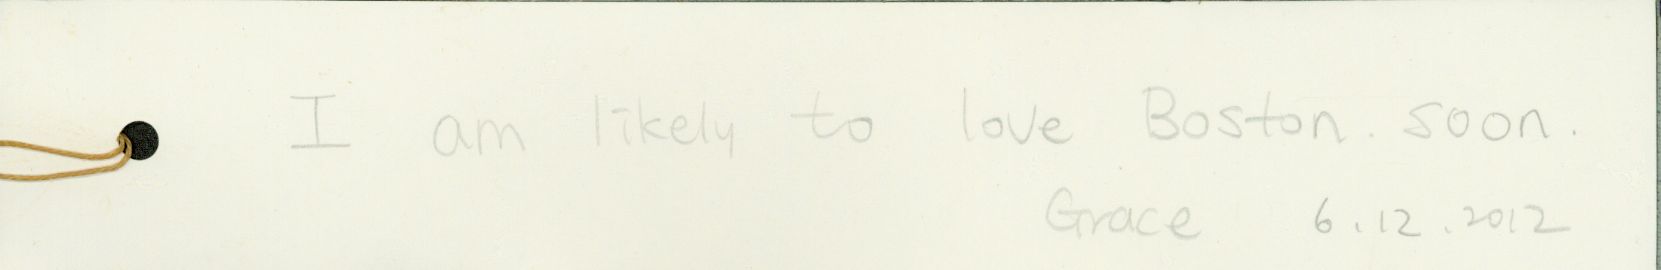 I am likely to love Boston. soon.
Grace 6.12.2012